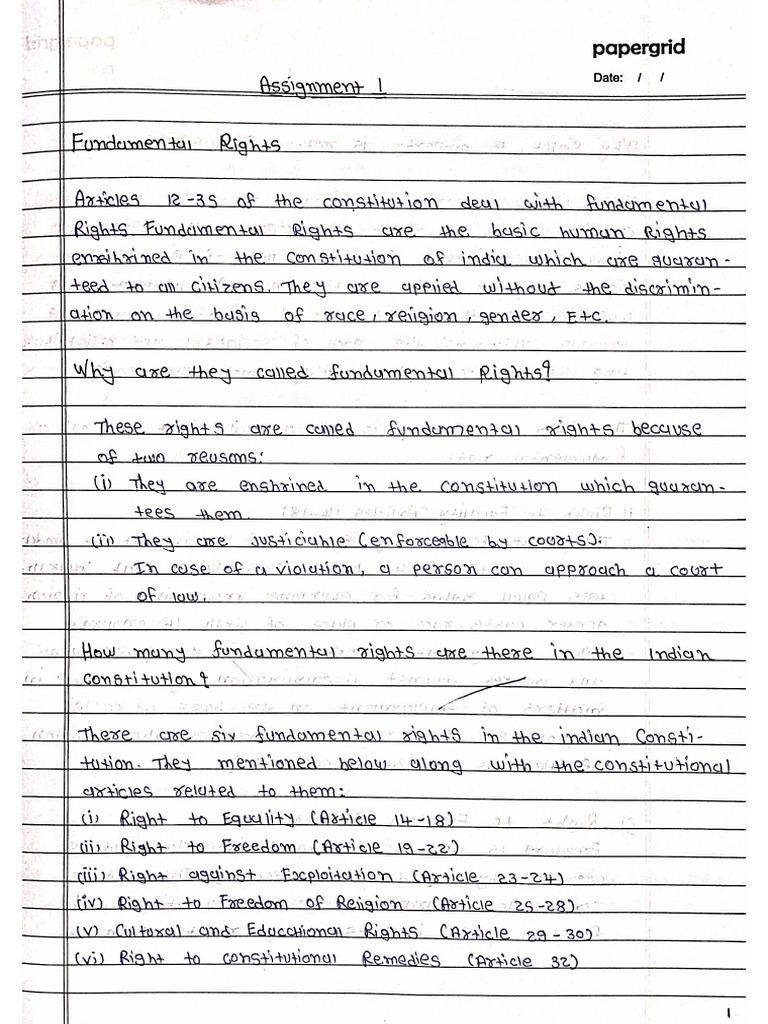 papergrid
Date: / /
Assignment 1
Fundamental Rights
Articles 12-35 of the constitution deal with fundamental
Rights Fundamental Rights are the basic human Rights
enxihrined in the constitution of india which are guaran-
teed to all citizens. They are applied without the discrimin-
ation on the basis of race, religion, gender, Etc.
Why are they called fundamental Rights?
These rights are called fundamental rights because
of two reasons:
(i) They are enshrined in the constitution which guaran-
tees them.
(ii) They are Justiciable (enforceable by courts).
In case of a violation, a person can approach a court
of law.
How many fundamental rights are there in the Indian
constitution?
There are six fundamental rights in the indian Consti-
tution. They mentioned below along with the constitutional
articles related to them:
(i) Right to Equality (Article 14-18)
(ii) Right to Freedom (Article 19-22)
(iii) Right against Excploitation (Article 23-24)
(iv) Right to Freedom of Religion (Article 25-28)
(v) Cultural and Educational Rights (Article 29-30)
(vi) Right to constitutional Remedies (Article 32)
1